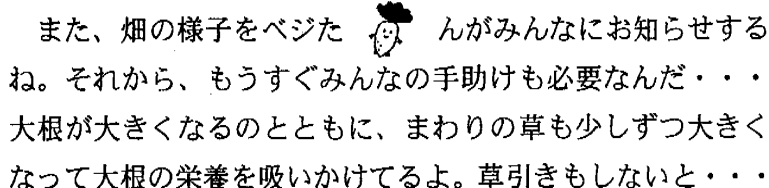 また、畑の様子をベジた んがみんなにお知らせする
ね。それから、もうすぐみんなの手助けも必要なんだ・・・
大根が大きくなるのとともに、まわりの草も少しずつ大きく
なって大根の栄養を吸いかけてるよ。草引きもしないと・・・